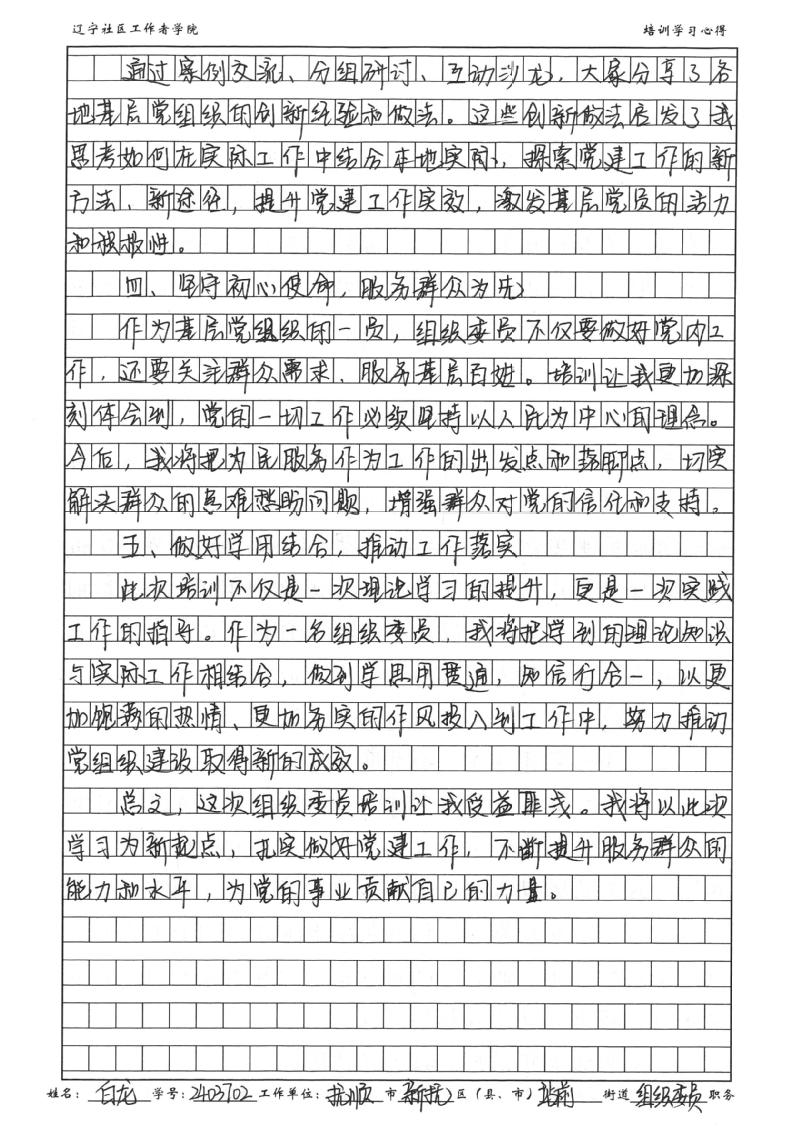 辽宁社区工作者学院 培训学习心得
通过案例交流、分组研讨、互动沙龙,大家分享了各
地基层党组织的创新经验和做法。这些创新做法启发了我
思考如何在实际工作中结合本地实际,探索党建工作的新
方法、新途径,提升党建工作实效,激发基层党员的活力
和积极性。
四、坚守初心使命,服务群众为先
作为基层党组织的一员,组织委员不仅要做好党内工
作,还要关注群众需求、服务基层百姓。培训让我更加深
刻体会到,党的一切工作必须坚持以人民为中心的理念。
今后,我将把为民服务作为工作的出发点和落脚点,切实
解决群众的急难愁盼问题,增强群众对党的信任和支持。
五、做好学用结合,推动工作落实
此次培训不仅是一次理论学习的提升,更是一次实践
工作的指导。作为一名组织委员,我将把学到的理论知识
与实际工作相结合,做到学思用贯通,知信行合一,以更
加饱满的热情、更加务实的作风投入到工作中,努力推动
党组织建设取得新的成效。
总之,这次组织委员培训让我受益匪浅。我将以此次
学习为新起点,扎实做好党建工作,不断提升服务群众的
能力和水平,为党的事业贡献自己的力量。
姓名:白龙 学号:2403702 工作单位:抚顺市新抚区(县、市)站前街道组织委员职务